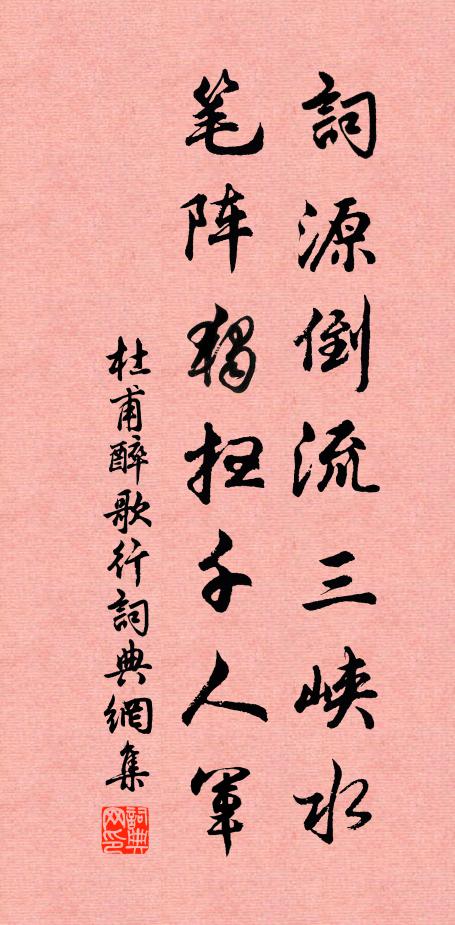 詞源倒流三峽水
笔阵獨扫千人軍
杜甫醉歌行詞典網集
詞典网印